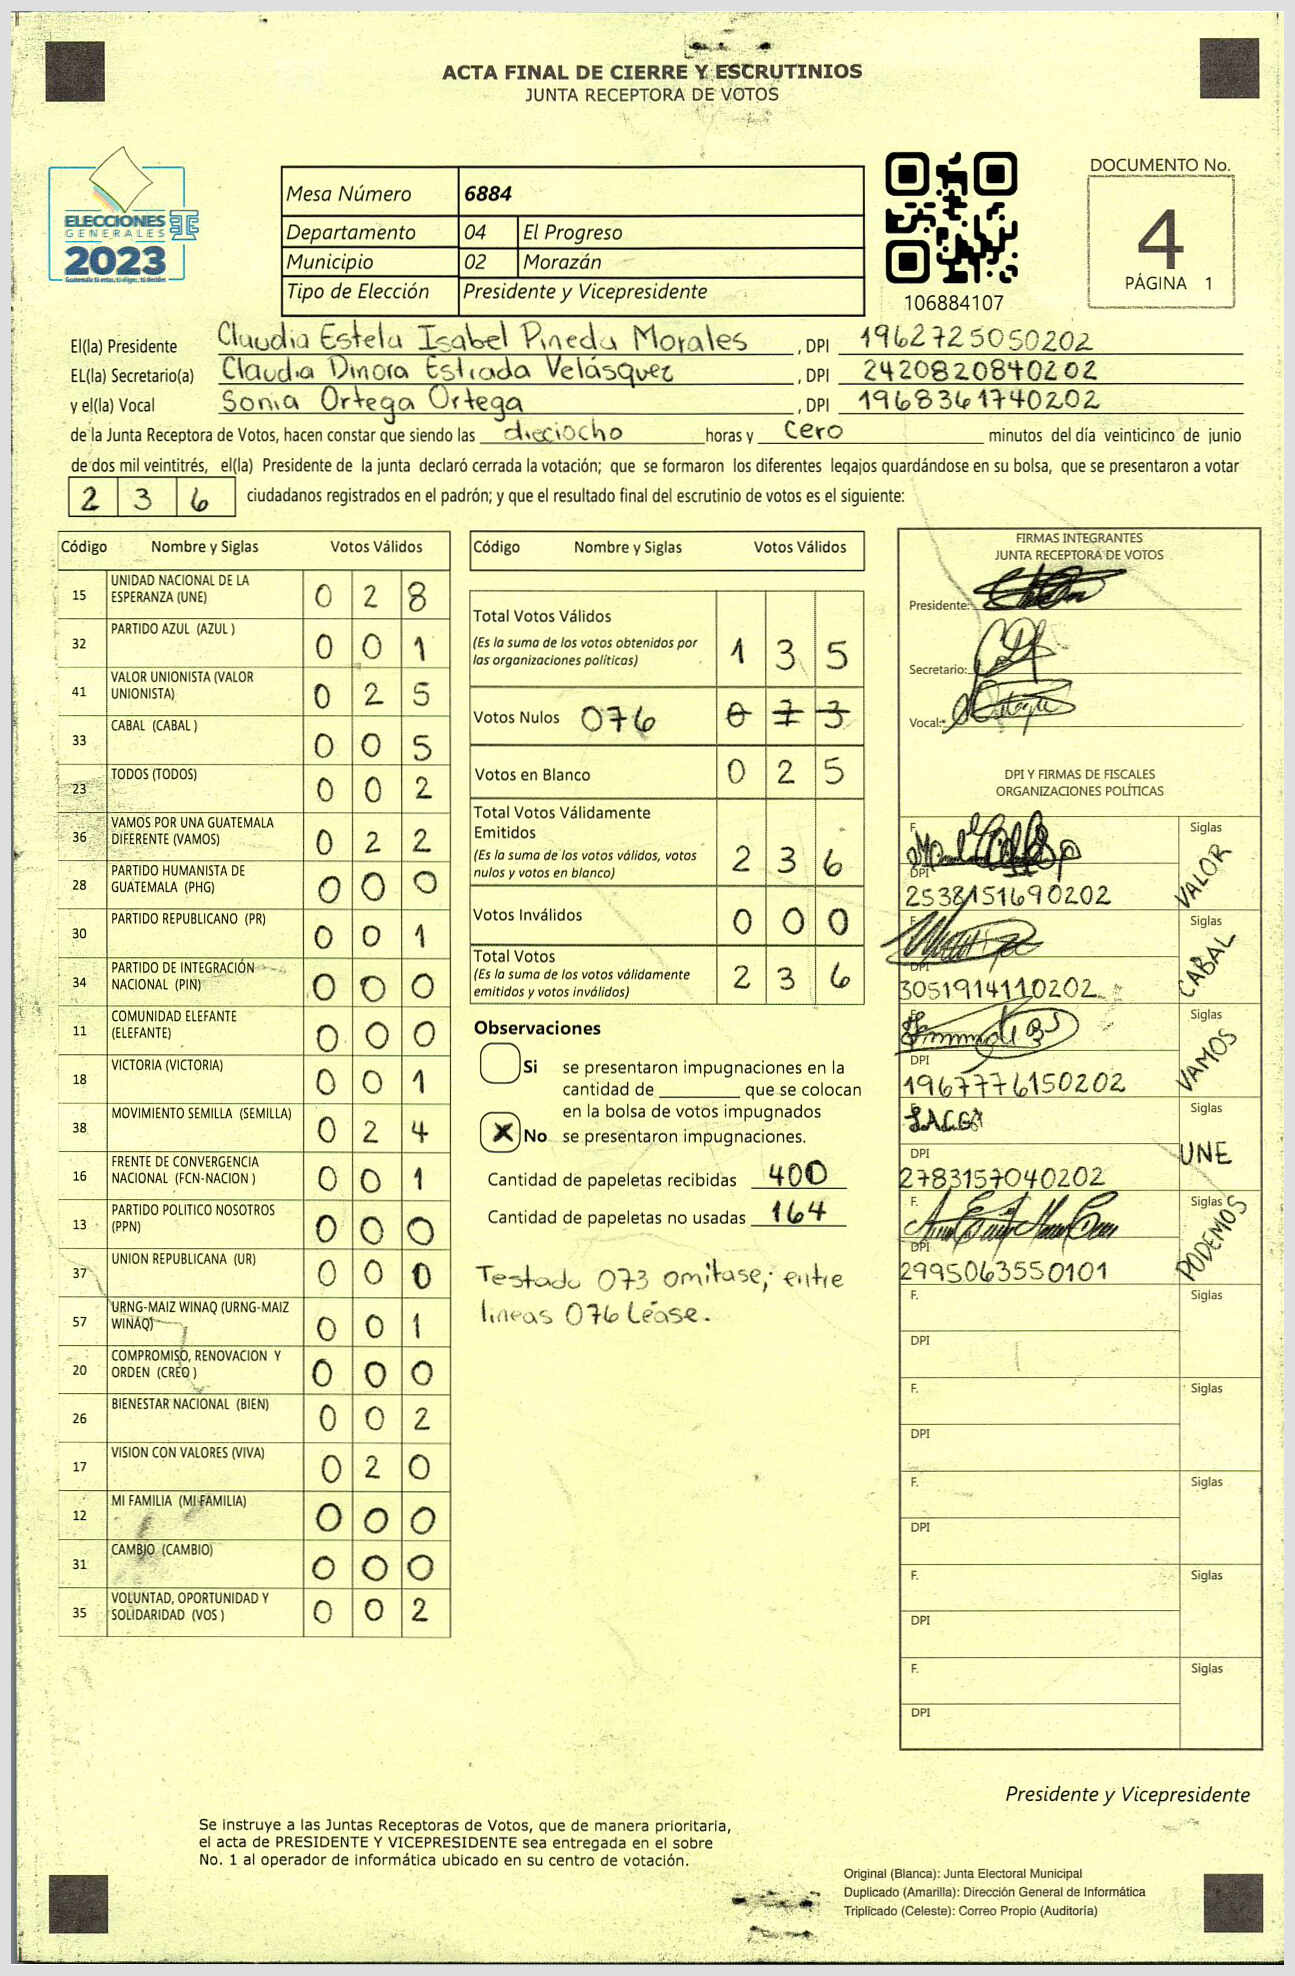 ACTA FINAL DE CIERRE Y ESCRUTINIOS
JUNTA RECEPTORA DE VOTOS
ELECCIONES
GENERALES
2023
Mesa Número 6884
Departamento 04 El Progreso
Municipio 02 Morazán
Tipo de Elección Presidente y Vicepresidente
106884107
DOCUMENTO No.
4
PÁGINA 1
El(la) Presidente Claudia Estela Isabel Pineda Morales , DPI 1962725050202
EL(la) Secretario(a) Claudia Dinora Estrada Velásquez , DPI 2420820840202
y el(la) Vocal Sonia Ortega Ortega , DPI 1968361740202
de la Junta Receptora de Votos, hacen constar que siendo las dieciocho horas y cero minutos del día veinticinco de junio
de dos mil veintitrés, el(la) Presidente de la junta declaró cerrada la votación; que se formaron los diferentes legajos guardándose en su bolsa, que se presentaron a votar
236 ciudadanos registrados en el padrón; y que el resultado final del escrutinio de votos es el siguiente:
Código Nombre y Siglas Votos Válidos
15 UNIDAD NACIONAL DE LA ESPERANZA (UNE) 0 2 8
32 PARTIDO AZUL (AZUL ) 0 0 1
41 VALOR UNIONISTA (VALOR UNIONISTA) 0 2 5
33 CABAL (CABAL ) 0 0 5
23 TODOS (TODOS) 0 0 2
36 VAMOS POR UNA GUATEMALA DIFERENTE (VAMOS) 0 2 2
28 PARTIDO HUMANISTA DE GUATEMALA (PHG) 0 0 0
30 PARTIDO REPUBLICANO (PR) 0 0 1
34 PARTIDO DE INTEGRACIÓN NACIONAL (PIN) 0 0 0
11 COMUNIDAD ELEFANTE (ELEFANTE) 0 0 0
18 VICTORIA (VICTORIA) 0 0 1
38 MOVIMIENTO SEMILLA (SEMILLA) 0 2 4
16 FRENTE DE CONVERGENCIA NACIONAL (FCN-NACION ) 0 0 1
13 PARTIDO POLITICO NOSOTROS (PPN) 0 0 0
37 UNION REPUBLICANA (UR) 0 0 0
57 URNG-MAIZ WINAQ (URNG-MAIZ WINAQ) 0 0 1
20 COMPROMISO, RENOVACION Y ORDEN (CREO ) 0 0 0
26 BIENESTAR NACIONAL (BIEN) 0 0 2
17 VISION CON VALORES (VIVA) 0 2 0
12 MI FAMILIA (MI FAMILIA) 0 0 0
31 CAMBIO (CAMBIO) 0 0 0
35 VOLUNTAD, OPORTUNIDAD Y SOLIDARIDAD (VOS ) 0 0 2
Código Nombre y Siglas Votos Válidos
Total Votos Válidos
(Es la suma de los votos obtenidos por
las organizaciones políticas) 1 3 5
Votos Nulos 076 0 7 3
Votos en Blanco 0 2 5
Total Votos Válidamente
Emitidos
(Es la suma de los votos válidos, votos
nulos y votos en blanco) 2 3 6
Votos Inválidos 0 0 0
Total Votos
(Es la suma de los votos válidamente
emitidos y votos inválidos) 2 3 6
Observaciones
Si se presentaron impugnaciones en la
cantidad de ________ que se colocan
en la bolsa de votos impugnados
X No se presentaron impugnaciones.
Cantidad de papeletas recibidas 400
Cantidad de papeletas no usadas 164
Testado 073 omitase; entre
lineas 076 Léase.
FIRMAS INTEGRANTES
JUNTA RECEPTORA DE VOTOS
Presidente:
Secretario:
Vocal:
DPI Y FIRMAS DE FISCALES
ORGANIZACIONES POLÍTICAS
F. Siglas
DPI VALOR
2538151690202
F. Siglas
DPI CABAL
3051914110202
F. Siglas
DPI VAMOS
1967776150202
F. Siglas
DPI UNE
2783157040202
F. Siglas
DPI PODEMOS
2995063550101
F. Siglas
DPI
F. Siglas
DPI
F. Siglas
DPI
F. Siglas
DPI
F. Siglas
DPI
Presidente y Vicepresidente
Se instruye a las Juntas Receptoras de Votos, que de manera prioritaria,
el acta de PRESIDENTE Y VICEPRESIDENTE sea entregada en el sobre
No. 1 al operador de informática ubicado en su centro de votación.
Original (Blanca): Junta Electoral Municipal
Duplicado (Amarilla): Dirección General de Informática
Triplicado (Celeste): Correo Propio (Auditoría)